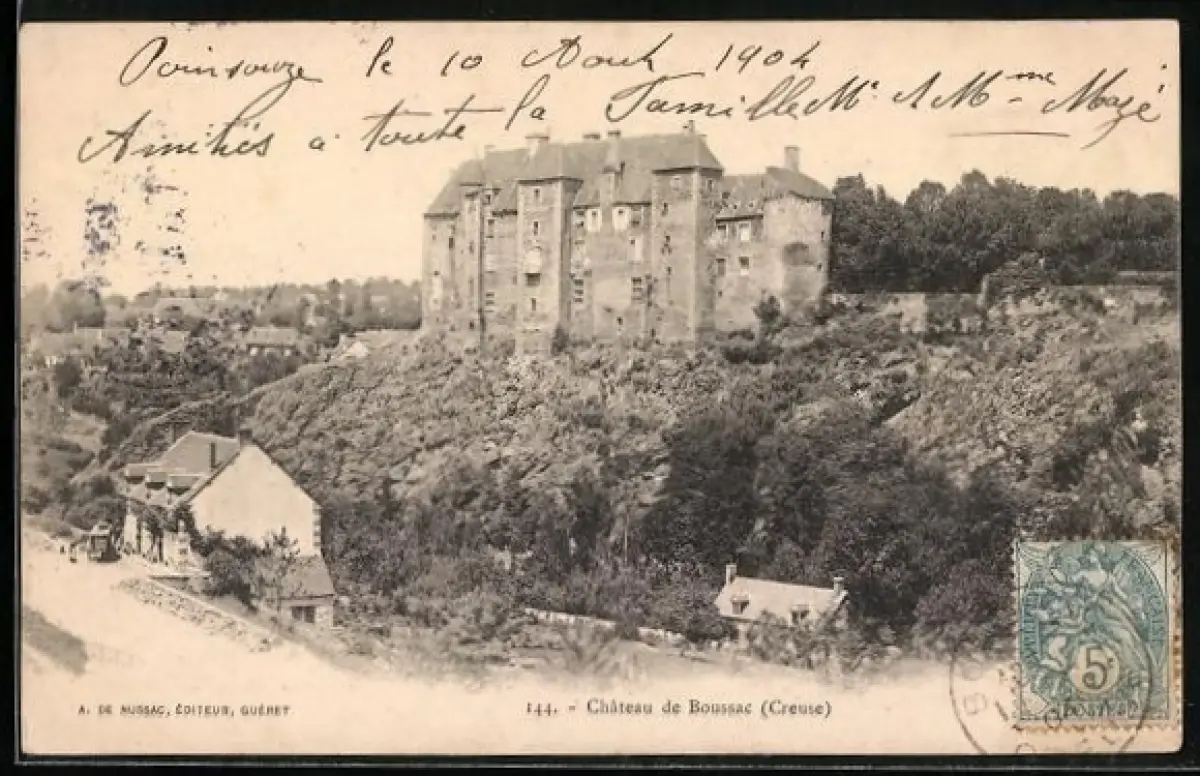 Poinsouze le 10 Aout 1904
Amitiés à toute la Famille Mr. et Mme Mazé
A. DE NUSSAC, ÉDITEUR, GUÉRET
144. - Château de Boussac (Creuse)
5c
POSTES